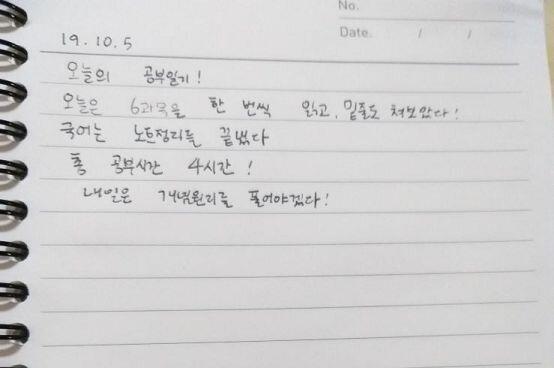 No.
Date. / /
19. 10. 5
오늘의 공부일기!
오늘은 6과목을 한 번씩 읽고, 밑줄도 쳐보았다!
국어는 노트정리를 끝냈다
총 공부시간 4시간!
내일은 개념원리를 풀어야겠다!